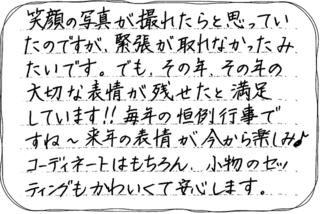 笑顔の写真が撮れたらと思ってい
たのですが、緊張が取れなかったみ
たいです。でも、その年、その年の
大切な表情が残せたと満足
しています!!毎年の恒例行事で
すね〜来年の表情が今から楽しみ♪
コーディネートはもちろん、小物のセッ
ティングもかわいくて安心します。